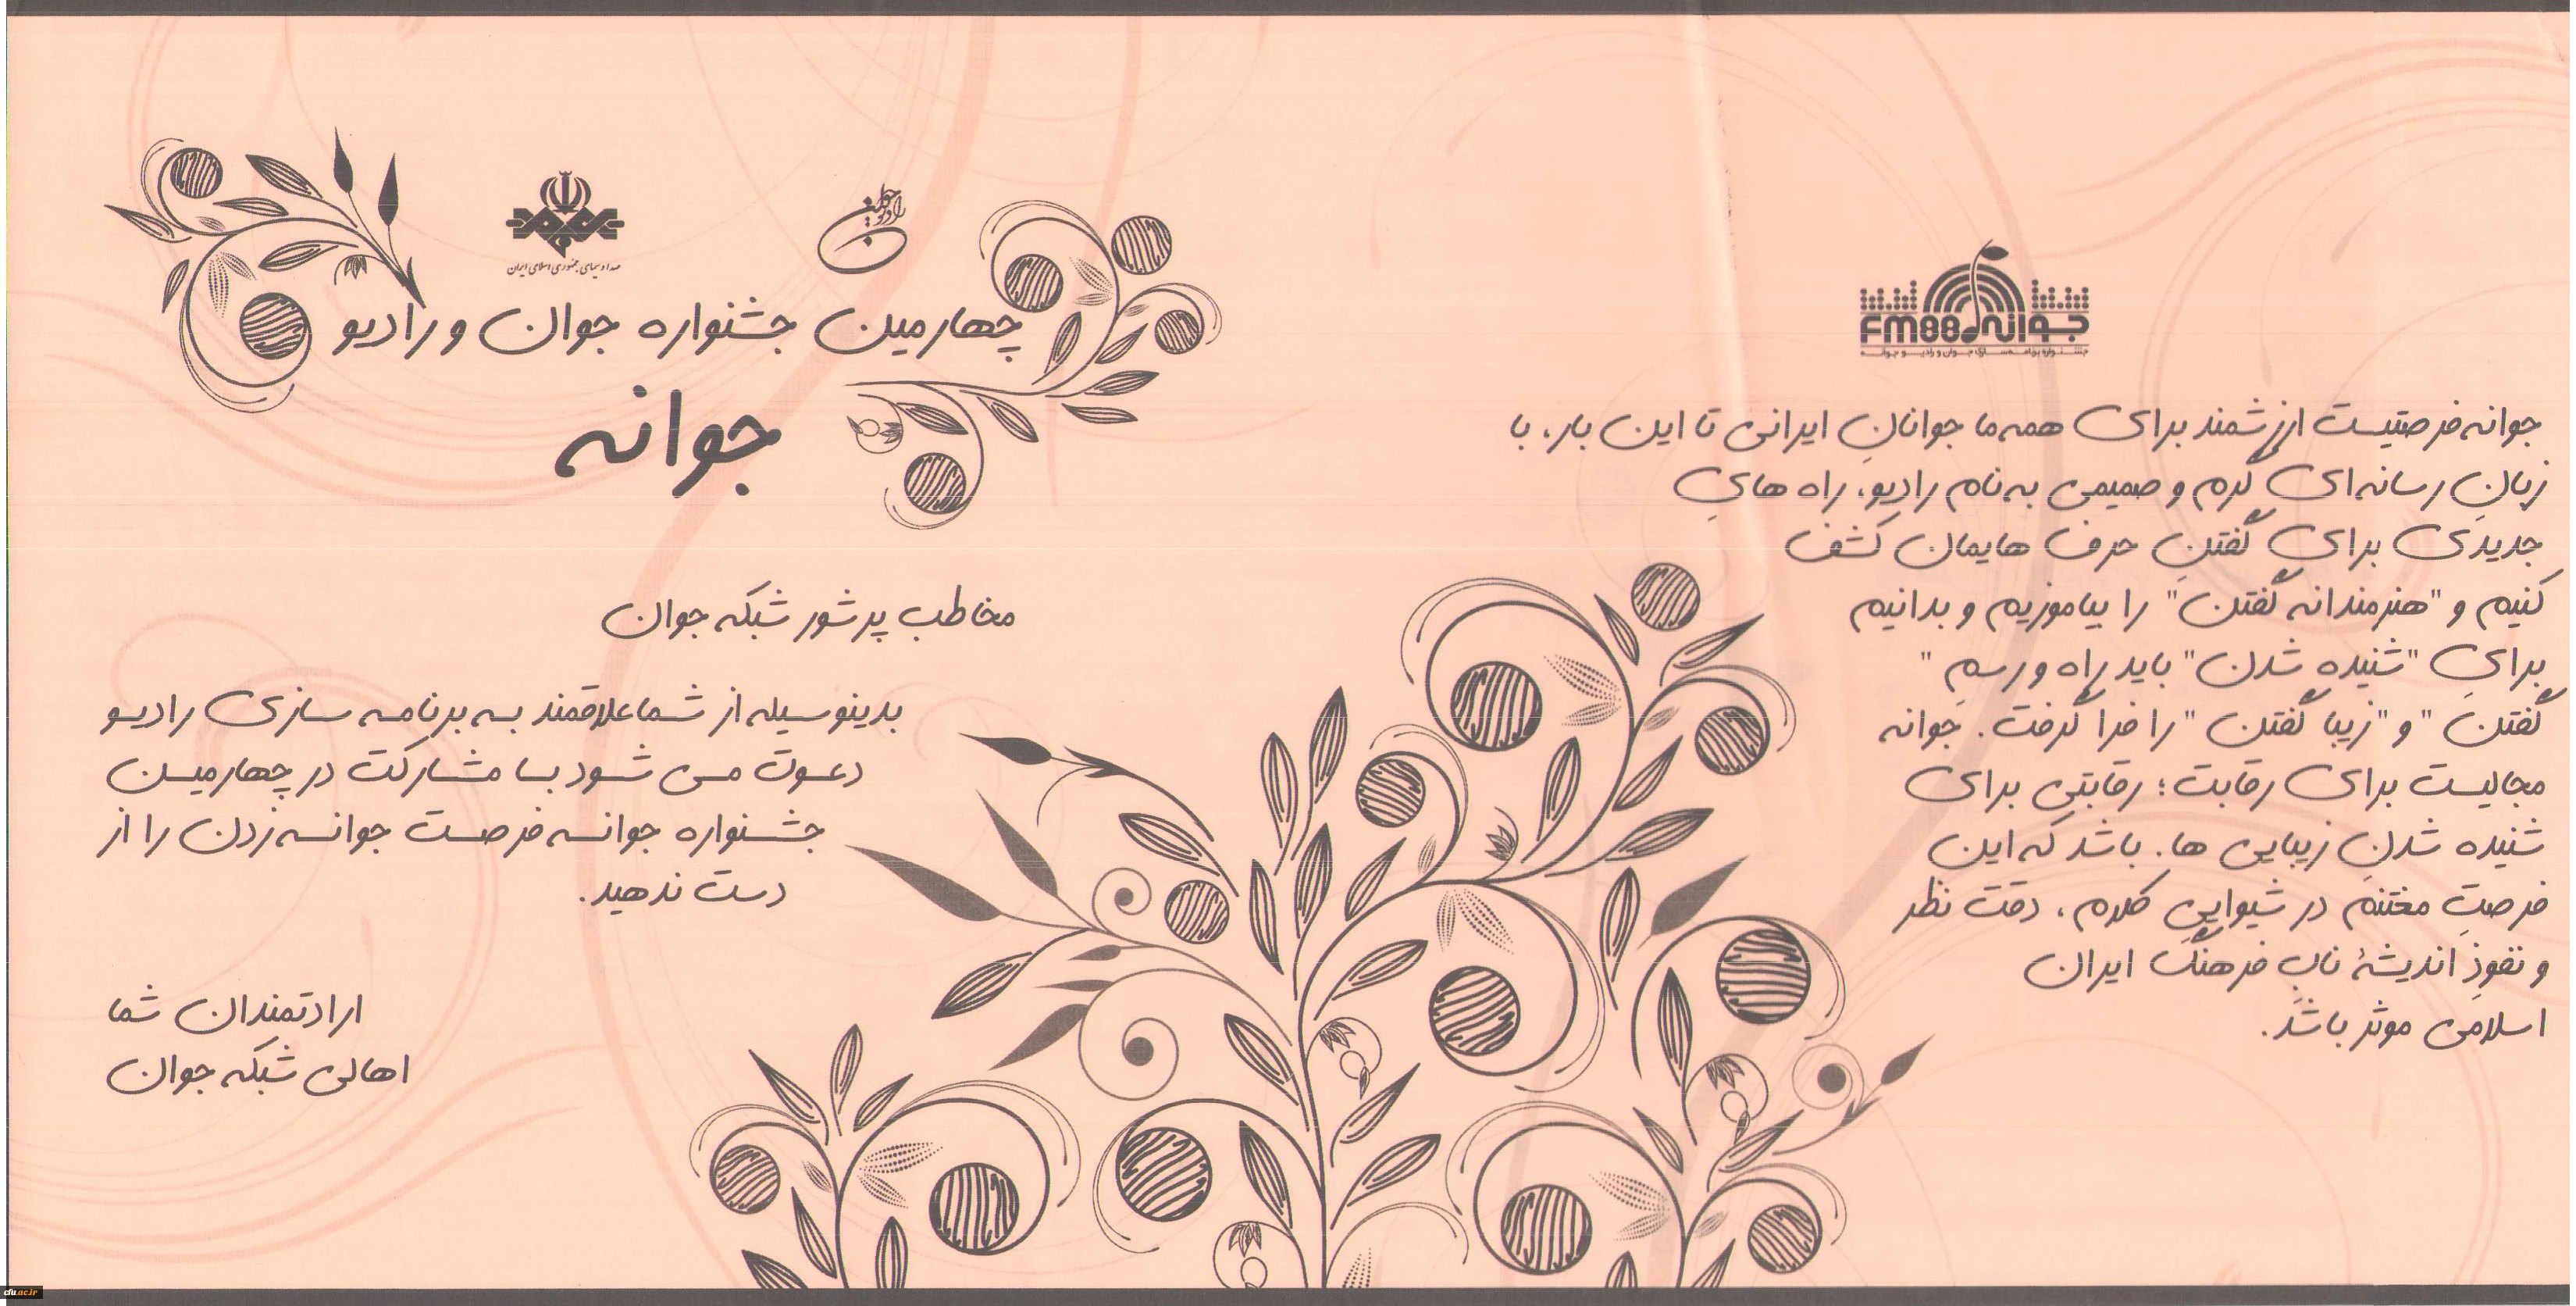 جوانه FM88
جشنواره برنامه‌سازی جوان و رادیو جوانه
جوانه فرصتیست ارزشمند برای همه ما جوانانِ ایرانی تا این بار، با
زبانِ رسانه‌ای گرم و صمیمی به نام رادیو، راه هایِ
جدیدی برایِ گفتنِ حرف هایمان کشف
کنیم و "هنرمندانه گفتن" را بیاموزیم و بدانیم
برایِ "شنیده شدن" باید راه و رسمِ "
گفتنِ " و "زیبا گفتن "را فرا گرفت. جوانه
مجالیست برای رقابت؛ رقابتی برای
شنیده شدنِ زیبایی ها. باشد که این
فرصتِ مغتنم در شیواییِ کلام، دقت نظر
و نفوذِ اندیشهٔ نابِ فرهنگِ ایران
اسلامی موثر باشد.
رادیو جوان
صدا و سیمای جمهوری اسلامی ایران
چهارمین جشنواره جوان و رادیو
جوانه
مخاطب پر شور شبکه جوان
بدینوسیله از شما علاقمند به برنامه سازی رادیو
دعوت می شود با مشارکت در چهارمین
جشنواره جوانه فرصت جوانه زدن را از
دست ندهید.
ارادتمندان شما
اهالی شبکه جوان
cfu.ac.ir